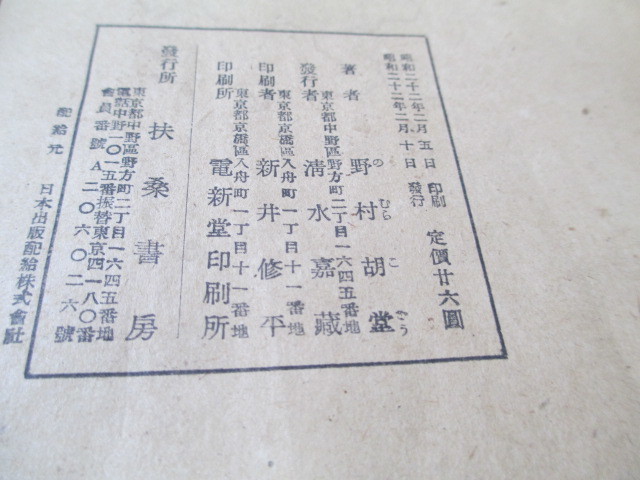 昭和二十二年二月五日 印刷
昭和二十二年二月十日 發行
定價廿六圓
著者 野村胡堂
の むら こ どう
東京都中野區野方町二丁目一六四五番地
發行者 淸水嘉藏
東京都京橋區入舟町一丁目十一番地
印刷者 新井修平
東京都京橋區入舟町一丁目十一番地
印刷所 電新堂印刷所
發行所 扶桑書房
東京都中野區野方町二丁目一六四五番地
電話中野一〇一五番振替東京四一八〇番
會員番號A二〇六〇二六號
配給元 日本出版配給株式會社